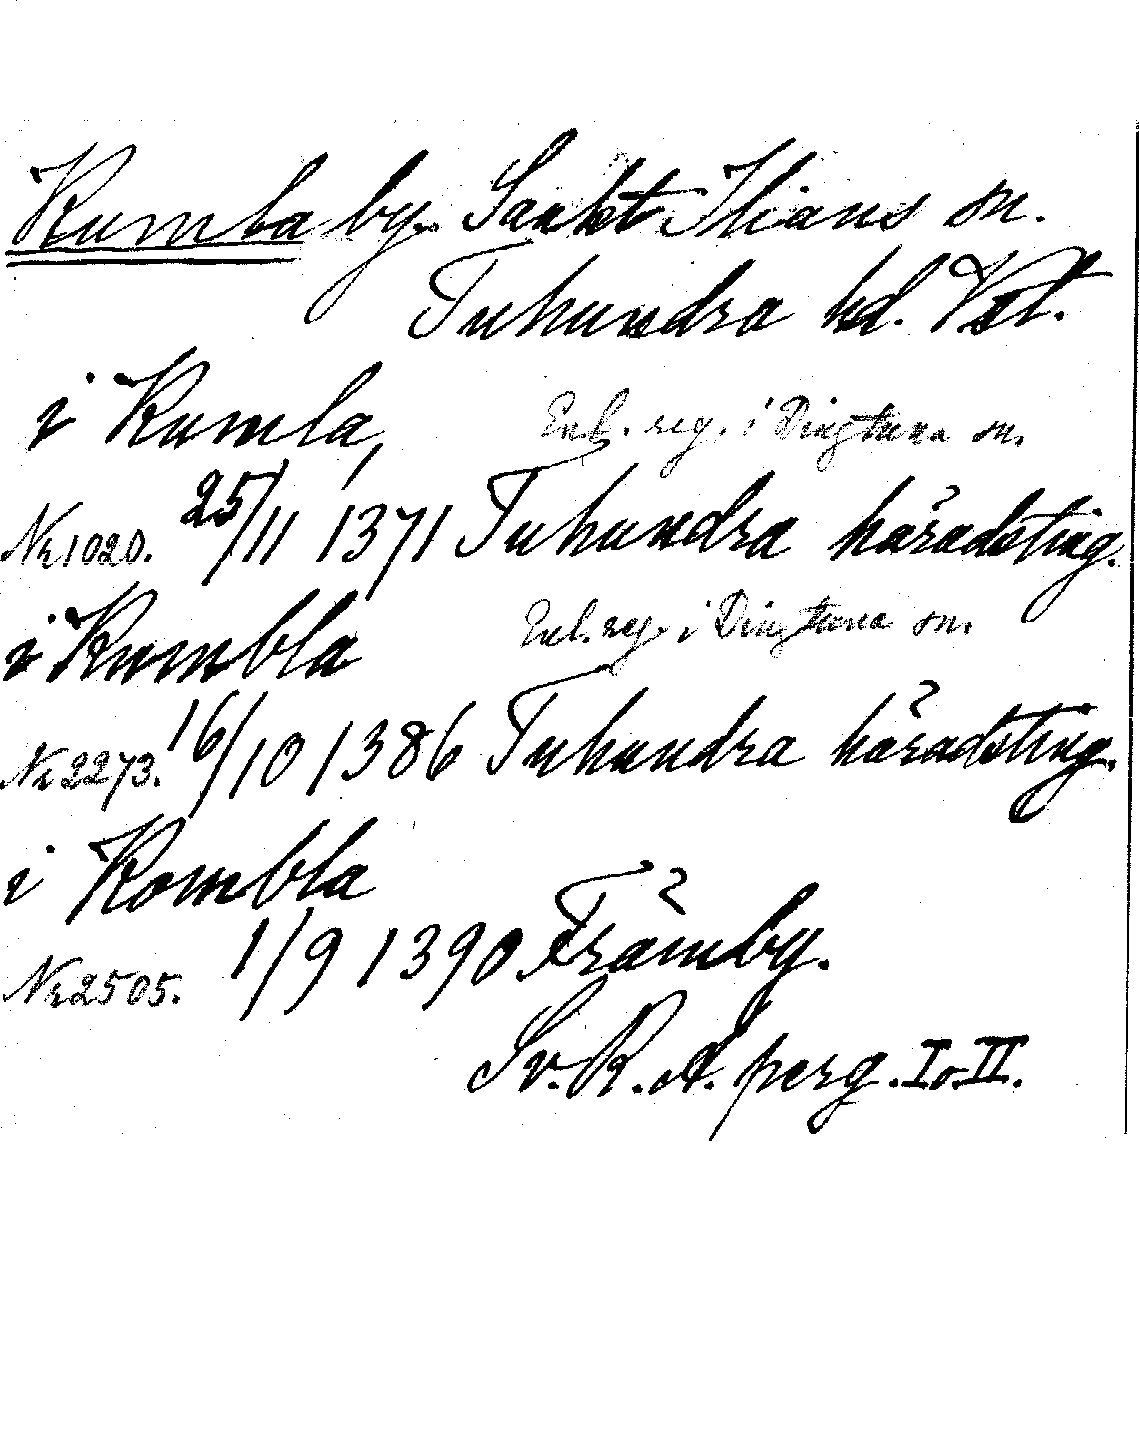 Kumla by. Sankt Ilians sn.
Tuhundra hd. Vstl.
i Kumla, Enl. reg. i Dingtuna sn.
Nr 1020. 25/11 1371 Tuhundra häradsting.
i Kumbla Enl. reg. i Dingtuna sn.
Nr 2273. 16/10 1386 Tuhundra häradsting.
i Kombla
Nr 2505. 1/9 1390 Främby.
Sv. R. A. perg. I o. II.